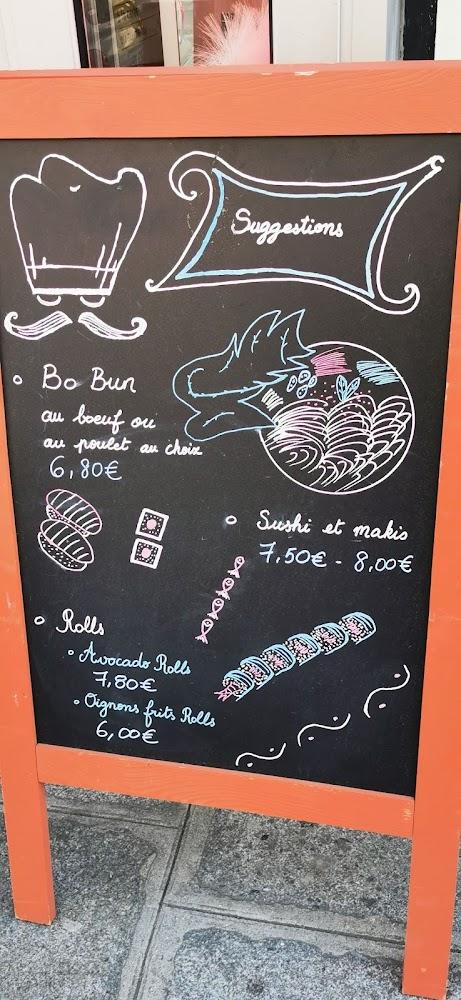 Suggestions
Bo Bun
au boeuf ou
au poulet au choix
6,80€
Sushi et makis
7,50€ - 8,00€
Rolls
Avocado Rolls
7,80€
Oignons frits Rolls
6,00€